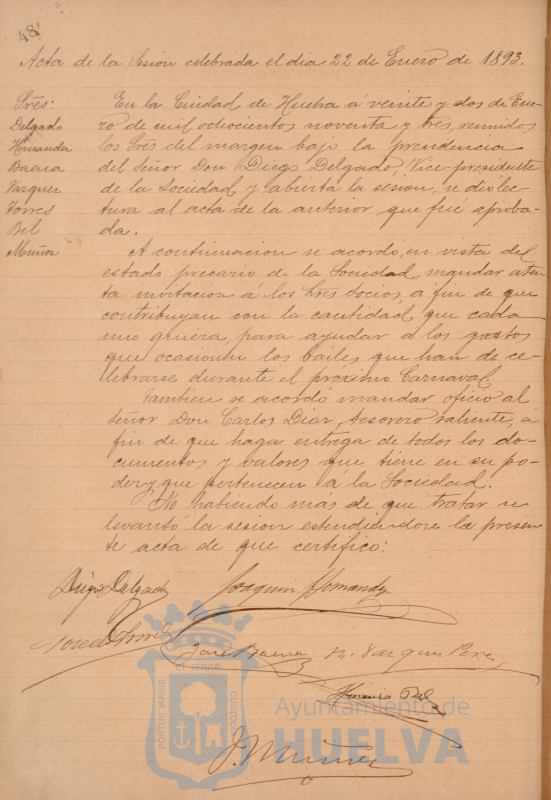 48
Acta de la Sesion celebrada el dia 22 de Enero de 1893.
Sres:
Delgado
Hernandez
Baena
Vazquez
Torres
Bel
Muñoz
En la Ciudad de Huelva á veinte y dos de Ene-
ro de mil ochocientos noventa y tres, reunidos
los Sres del margen bajo la presidencia
del Señor Don Diego Delgado, Vice-presidente
de la Sociedad, y abierta la sesion, se dió lec-
tura al acta de la anterior que fué aproba-
da.
A continuacion se acordó, en vista del
estado precario de la Sociedad, mandar aten-
ta invitacion á los Sres Socios, á fin de que
contribuyan con la cantidad que cada
uno quiera, para ayudar á los gastos
que ocasionen los bailes que han de ce-
lebrarse durante el próximo Carnaval.
Tambien se acordó mandar oficio al
señor Don Carlos Diaz, tesorero saliente, á
fin de que haga entrega de todos los do-
cumentos y valores que tiene en su po-
der y que pertenecen á la Sociedad.
No habiendo más de que tratar se
levantó la sesion estendiéndose la presen-
te acta de que certifico:
Diego Delgado Joaquin Hernandez
José Baena M. Vazquez Perez
Bel
J. Muñoz
PORTUS MARIS ET TERRAE CUSTODIA
Ayuntamiento de
HUELVA